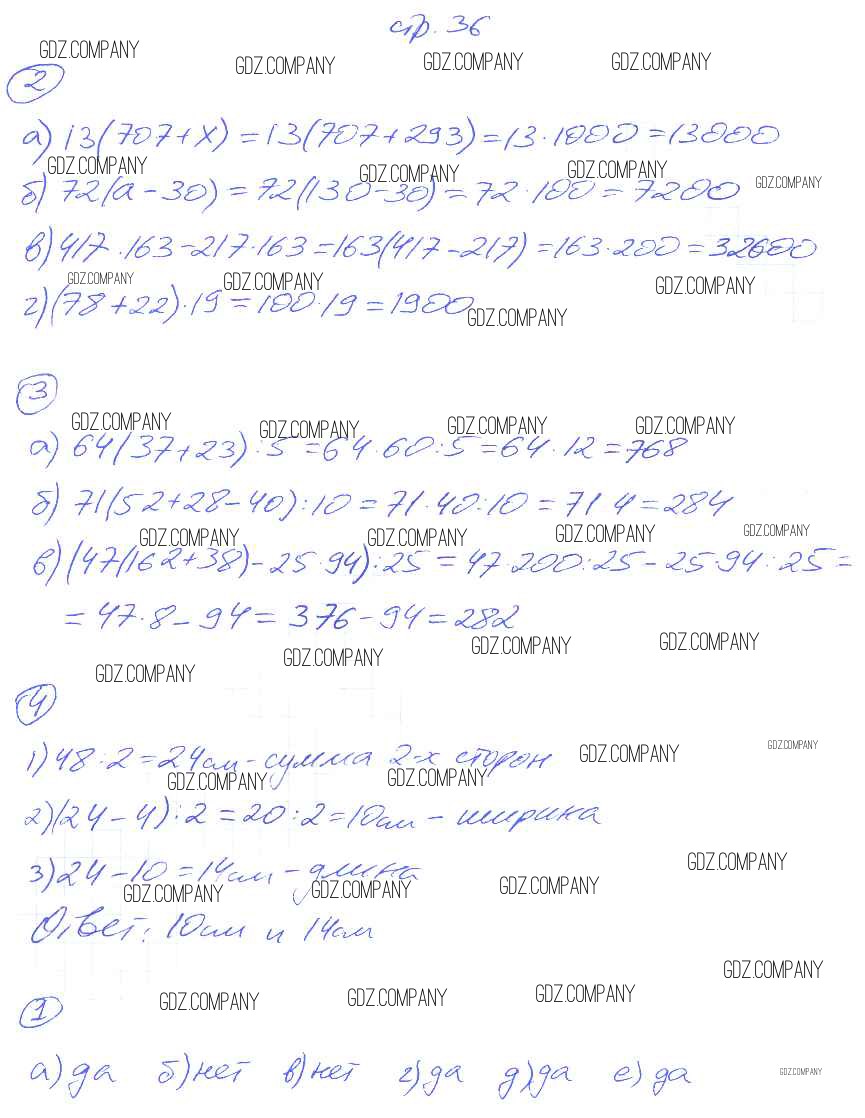 стр. 36
GDZ.COMPANY GDZ.COMPANY GDZ.COMPANY GDZ.COMPANY
2
а) 13(707+x) = 13(707+293) = 13·1000 = 13000
GDZ.COMPANY GDZ.COMPANY GDZ.COMPANY GDZ.COMPANY
б) 72(а-30) = 72(130-30) = 72·100 = 7200
в) 417·163-217·163 = 163(417-217) = 163·200 = 32600
GDZ.COMPANY GDZ.COMPANY GDZ.COMPANY
г) (78+22)·19 = 100·19 = 1900
GDZ.COMPANY
3
GDZ.COMPANY GDZ.COMPANY GDZ.COMPANY GDZ.COMPANY
а) 64(37+23):5 = 64·60:5 = 64·12 = 768
б) 71(52+28-40):10 = 71·40:10 = 71·4 = 284
GDZ.COMPANY GDZ.COMPANY GDZ.COMPANY GDZ.COMPANY
в) (47(162+38)-25·94):25 = 47·200:25-25·94:25 =
= 47·8-94 = 376-94 = 282
GDZ.COMPANY GDZ.COMPANY GDZ.COMPANY GDZ.COMPANY
4
1) 48:2=24см - сумма 2-х сторон
GDZ.COMPANY GDZ.COMPANY GDZ.COMPANY GDZ.COMPANY
2) (24-4):2=20:2=10см - ширина
3) 24-10=14см - длина
GDZ.COMPANY GDZ.COMPANY GDZ.COMPANY GDZ.COMPANY
Ответ: 10см и 14см
GDZ.COMPANY GDZ.COMPANY GDZ.COMPANY GDZ.COMPANY
1
а) да б) нет в) нет г) да д) да е) да
GDZ.COMPANY